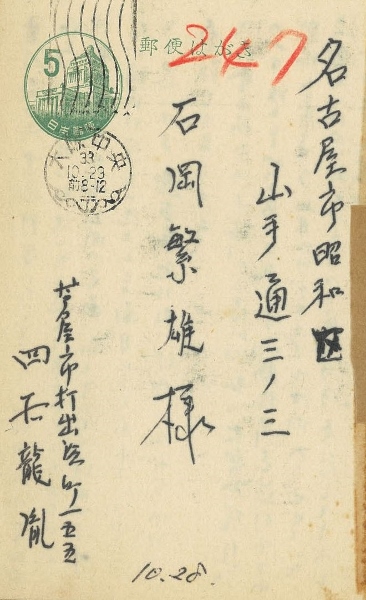 郵便はがき
247
5
日本郵便
大阪中央
33
10.23
前8-12
名古屋市昭和区
山手通三ノ三
石岡繁雄様
芦屋市打出浜町一五五
四石龍胤
10.28.